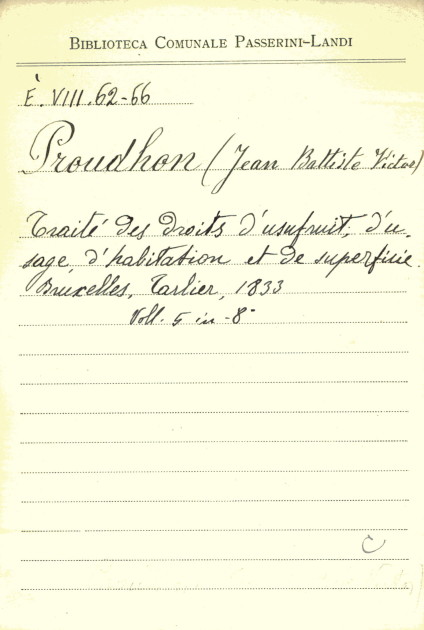 BIBLIOTECA COMUNALE PASSERINI-LANDI
E. VIII. 62-66
Proudhon (Jean Battiste Victor)
Traité des droits d'usufruit, d'u.
sage, d'habitation et de superficie.
Bruxelles, Tarlier, 1833
Voll. 5 in-8°
C